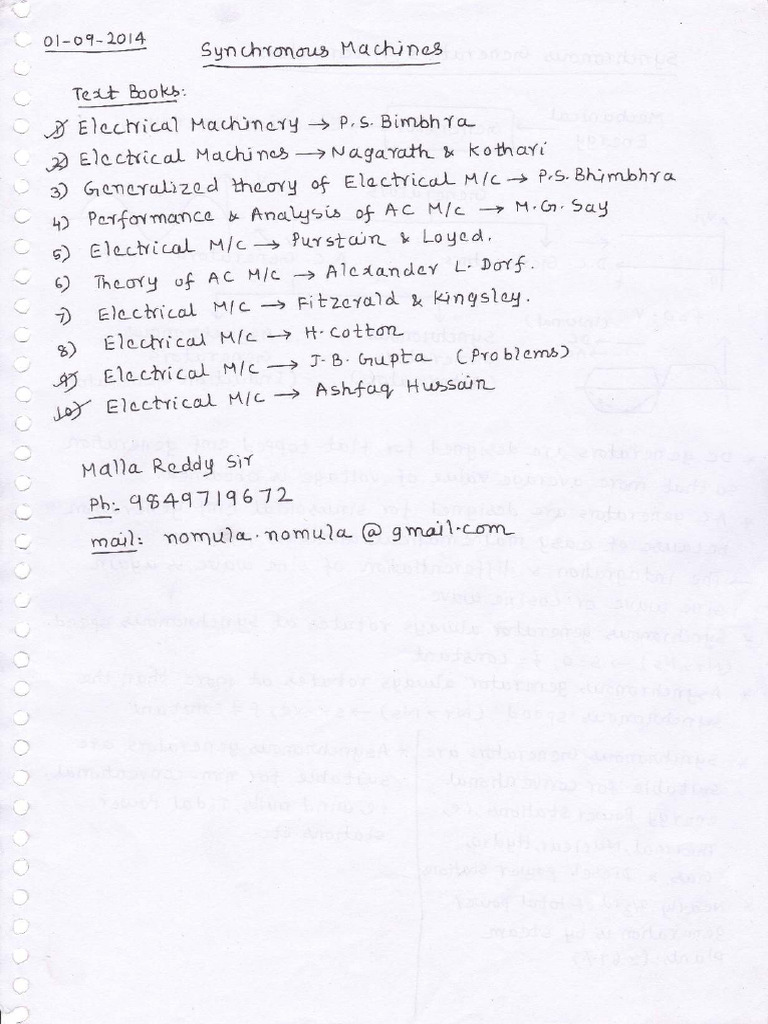 01-09-2014
Synchronous Machines
Text Books:
1) Electrical Machinery → P.S. Bimbhra
2) Electrical Machines → Nagarath & Kothari
3) Generalized theory of Electrical M/C → P.S. Bhimbhra
4) Performance & Analysis of AC M/C → M.G. Say
5) Electrical M/C → Purstain & Loyed.
6) Theory of AC M/C → Alexander L. Dorf.
7) Electrical M/C → Fitzerald & Kingsley.
8) Electrical M/C → H. Cotton
9) Electrical M/C → J.B. Gupta (Problems)
10) Electrical M/C → Ashfaq Hussain
Malla Reddy Sir
Ph:- 9849719672
mail: nomula.nomula@gmail.com